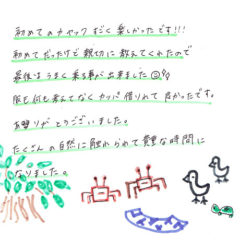 初めてのカヤックすごく楽しかったです!!!
初めてだったけど親切に教えてくれたので
最後はうまく乗る事が出来ました
服も何も考えてなくカッパ借りれて良かったです。
ありがとうございました。
たくさんの自然に触れられて貴重な時間に
なりました。